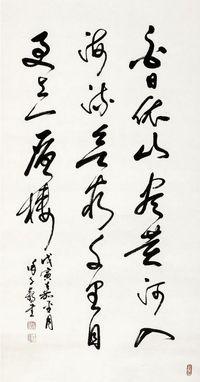 白日依山尽黄河入
海流欲穷千里目
更上一層楼
戊寅嘉平月
書